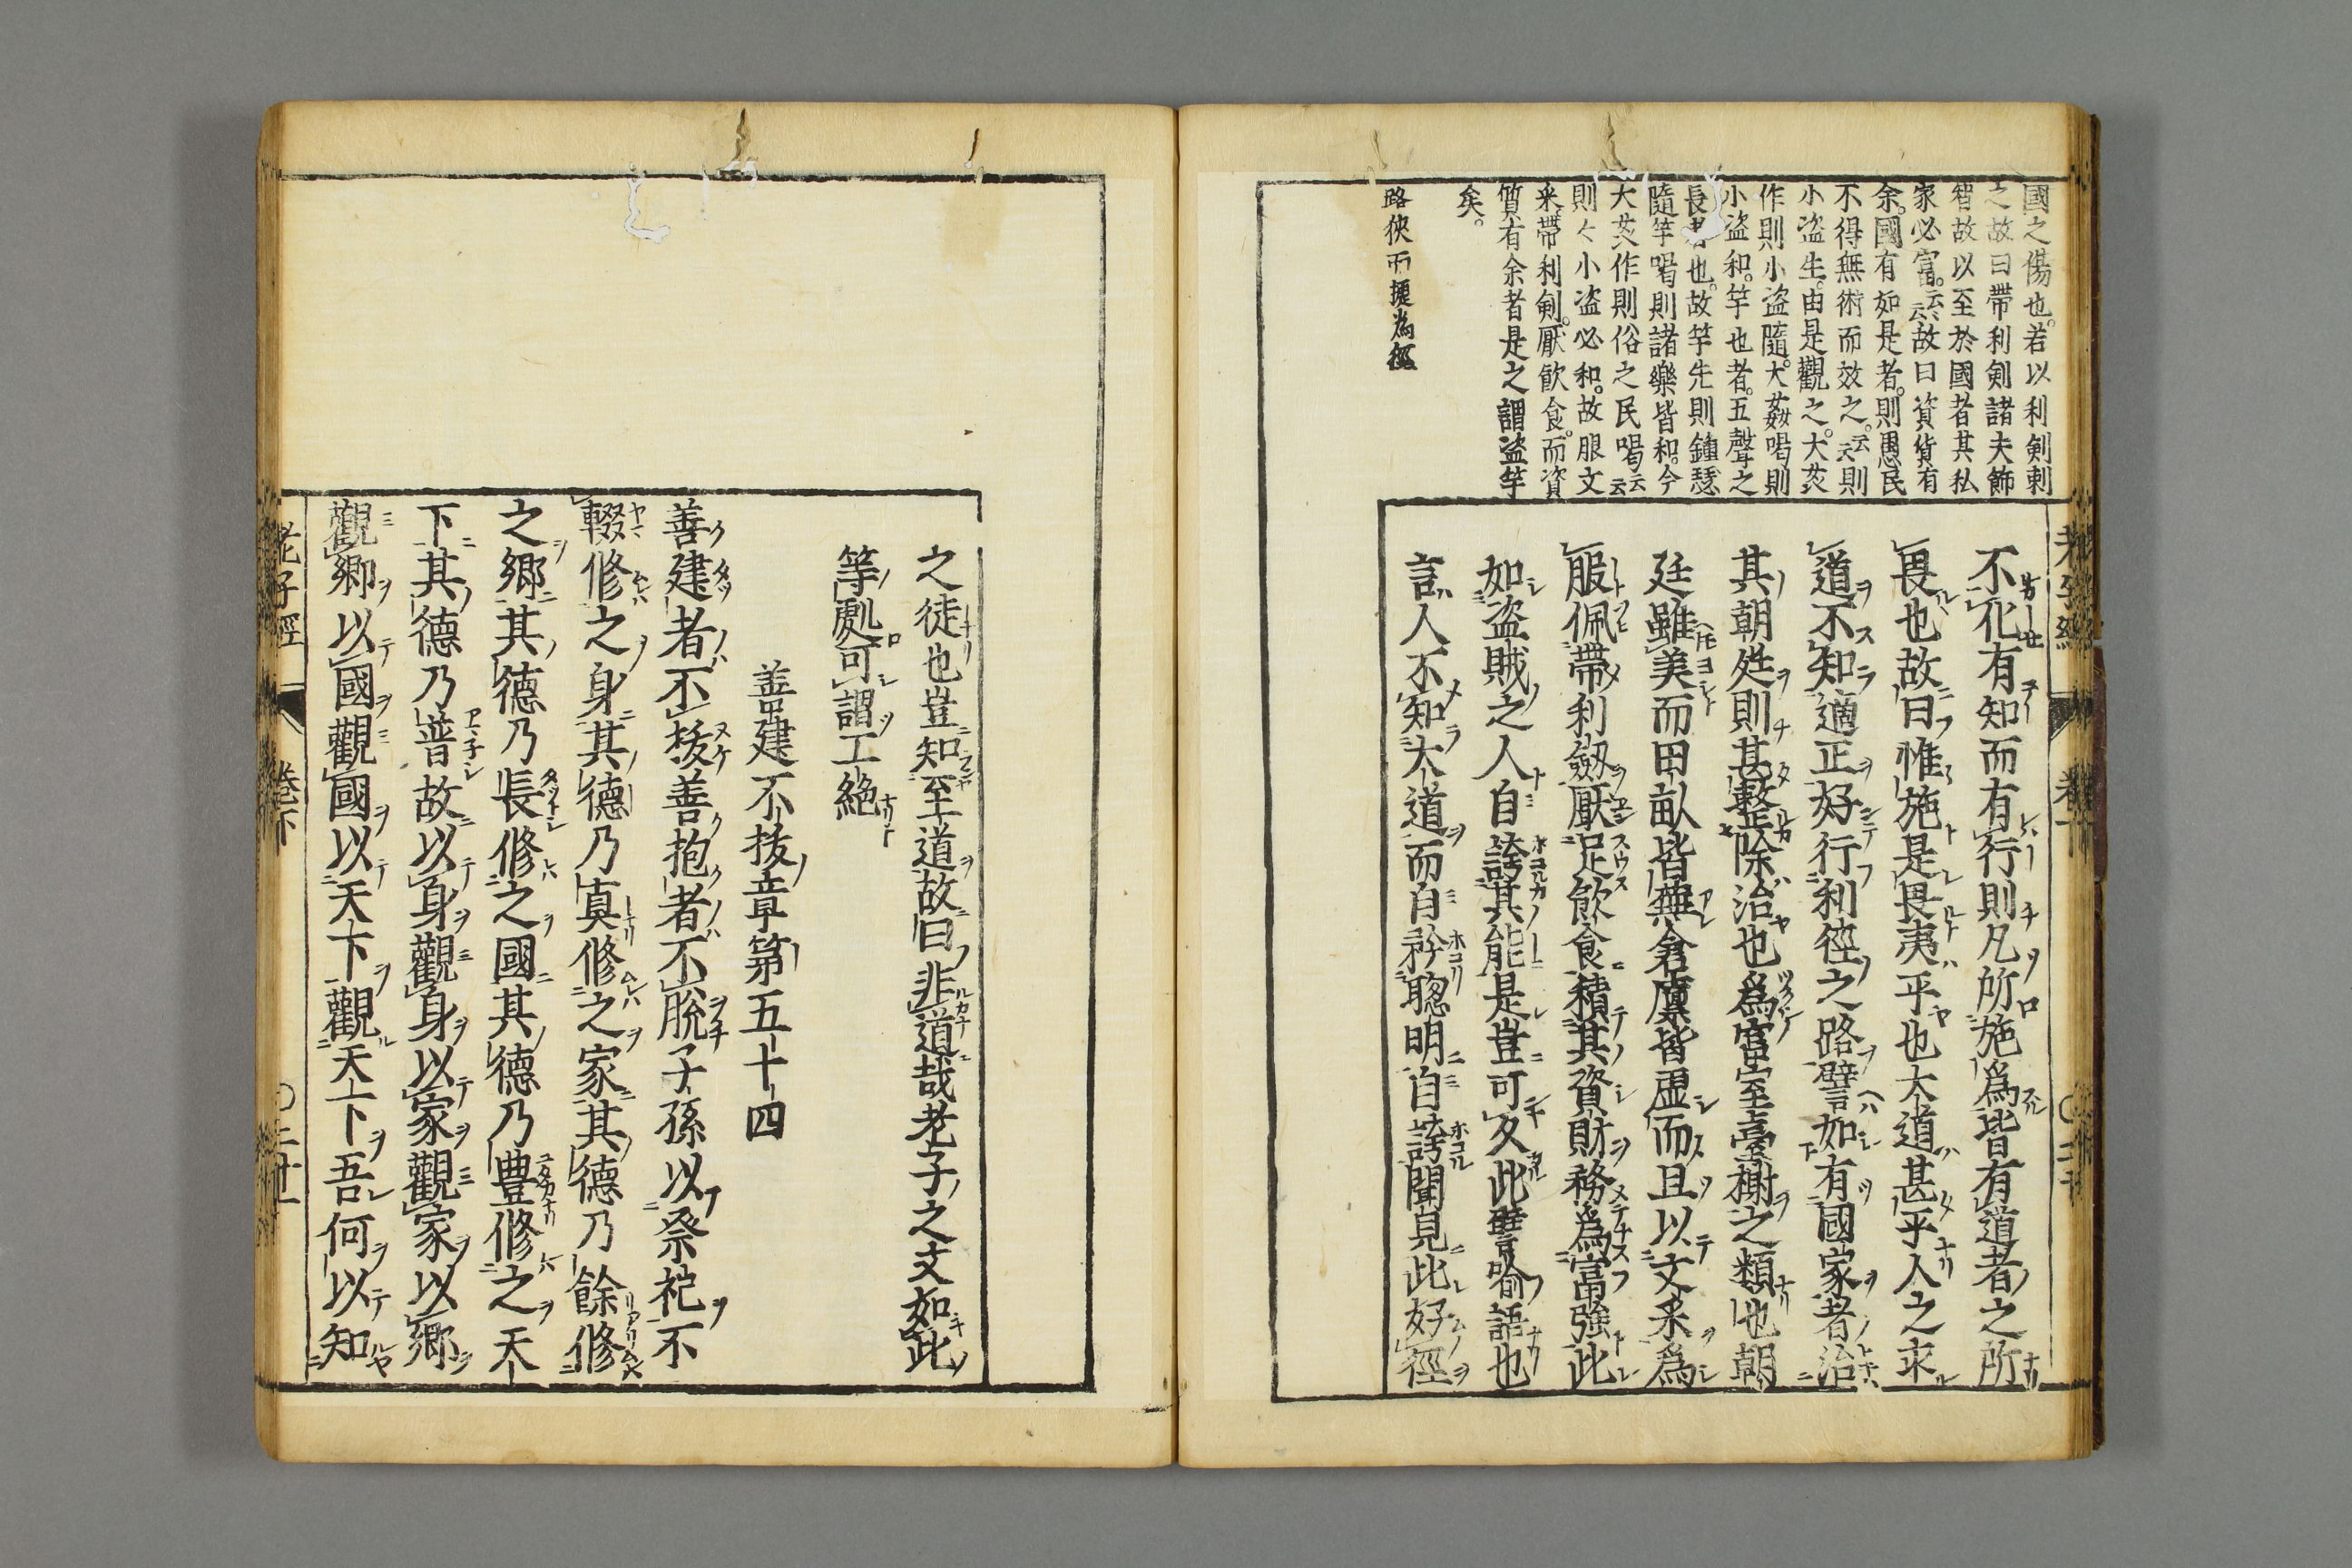 國之傷也。若以利剣刺
之故曰帶利剣諸夫飾
智故以至於國者其私
家必富。云云故曰資貨有
余。國有如是者。則愚民
不得無術而效之。云云則
小盗生。由是觀之。大姦
作則小盗隨。大姦唱則
小盗和。竽也者。五聲之
長者也。故竽先則鍾瑟
隨竽唱則諸樂皆和。今
大姦作則俗之民唱云云
則人小盗必和。故服文
采。帶利剣。厭飲食。而資
質有余者是之謂盗竽
矣。
路狹而捷為徑
不化有知而有行則凡所施爲皆有道者之所
畏也故曰惟施是畏夷平也大道甚乎人之求
道不知適正好行利徑之路譬如有國家者治
其朝廷則甚整除治也爲宮室臺榭之類也朝
廷雖美而田畝皆蕪倉廩皆虛而且以文采爲
服佩帶利劔厭足飲食積其資財務爲富強此
如盗賊之人自誇其能是豈可久此譬喻語也
言人不知大道而自矜聰明自誇聞見此好徑
之徒也豈知至道故曰非道哉老子之文如此
等處可謂工絶
善建不拔章第五十四
善建者不拔善抱者不脫子孫以祭祀不
輟修之身其德乃真修之家其德乃餘修
之郷其德乃長修之國其德乃豊修之天
下其德乃普故以身觀身以家觀家以郷
觀郷以國觀國以天下觀天下吾何以知
老子經 卷下